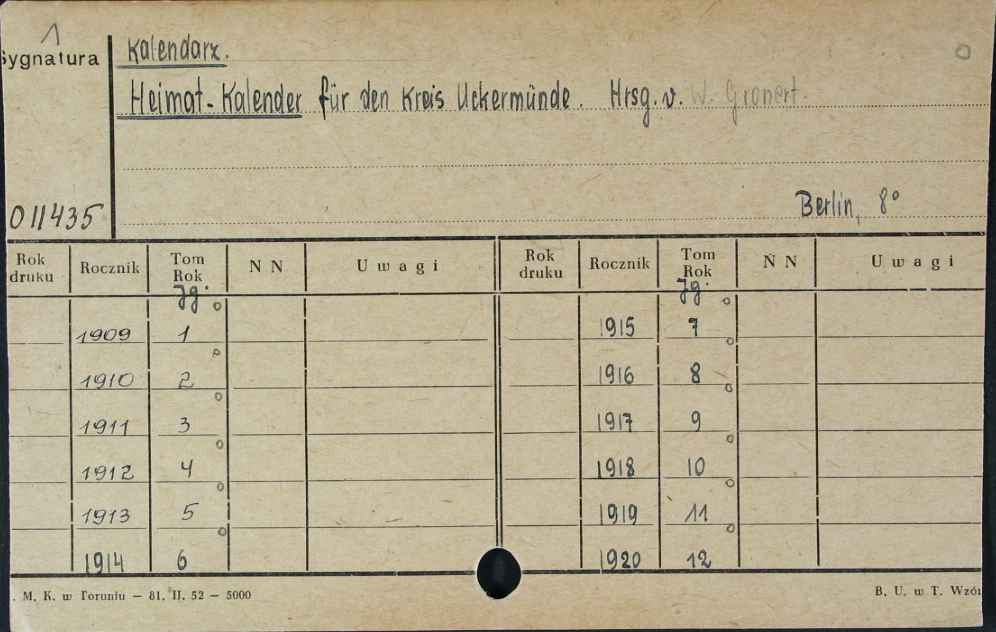 1
Sygnatura
Kalendarz.
Heimat-Kalender für den Kreis Uckermünde. Hrsg. v. W. Gronert.
Berlin, 8°
011435
Rok druku Rocznik Tom Rok N N Uwagi Rok druku Rocznik Tom Rok N N Uwagi
Jg. Jg.
1909 1 1915 7
1910 2 1916 8
1911 3 1917 9
1912 4 1918 10
1913 5 1919 11
1914 6 1920 12
. M. K. w Toruniu — 81. II. 52 — 5000 B. U. w T. Wzór